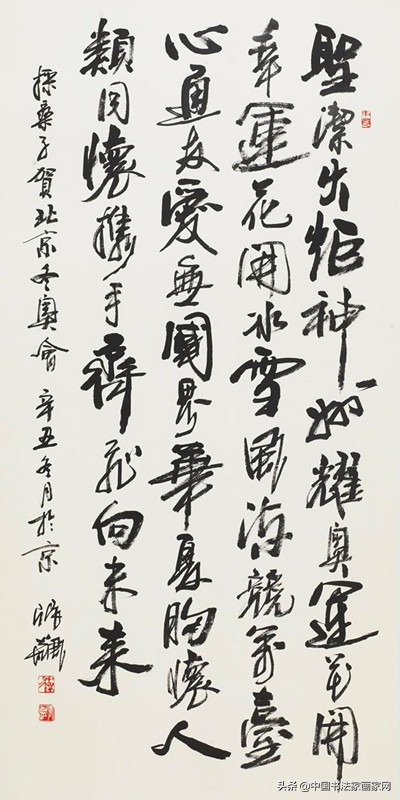 聖潔火炬神州耀奧運花開
幸運花開冰雪風流競舞臺
心通友愛無國界華夏胸懷人
類同懷攜手齊飛向未來
採桑子賀北京冬奧會 辛丑冬月於京
头条 @中国书法家画家网